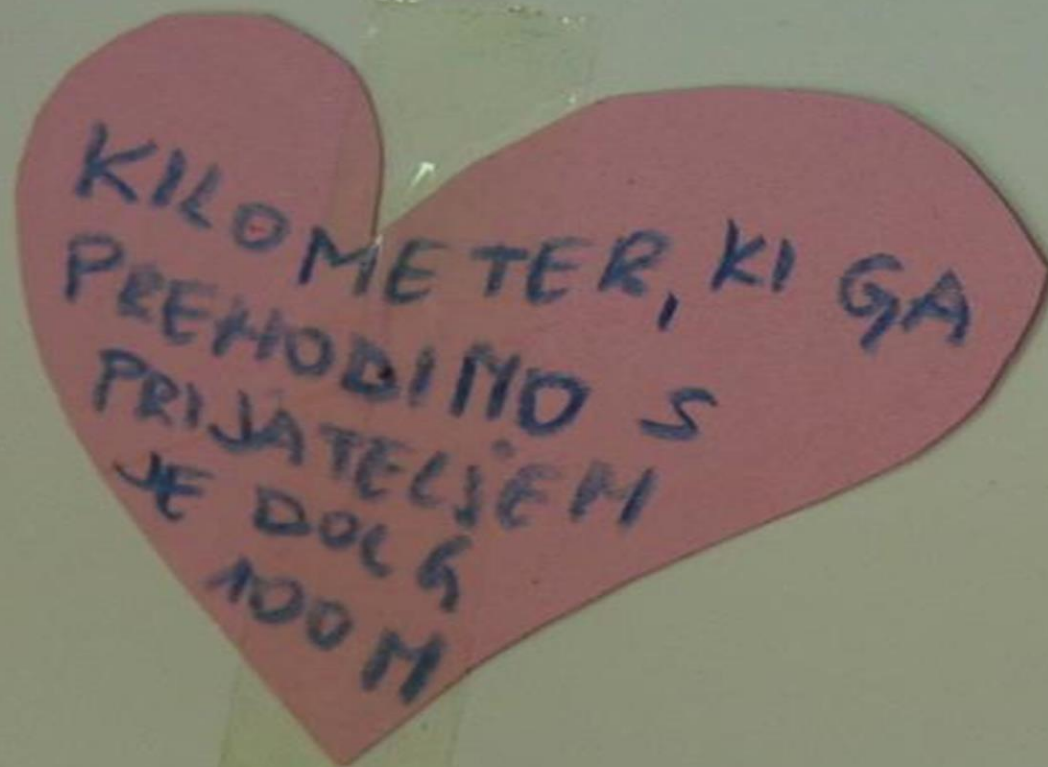 KILOMETER, KI GA
PREHODIMO S
PRIJATELJEM
JE DOLG
100 M